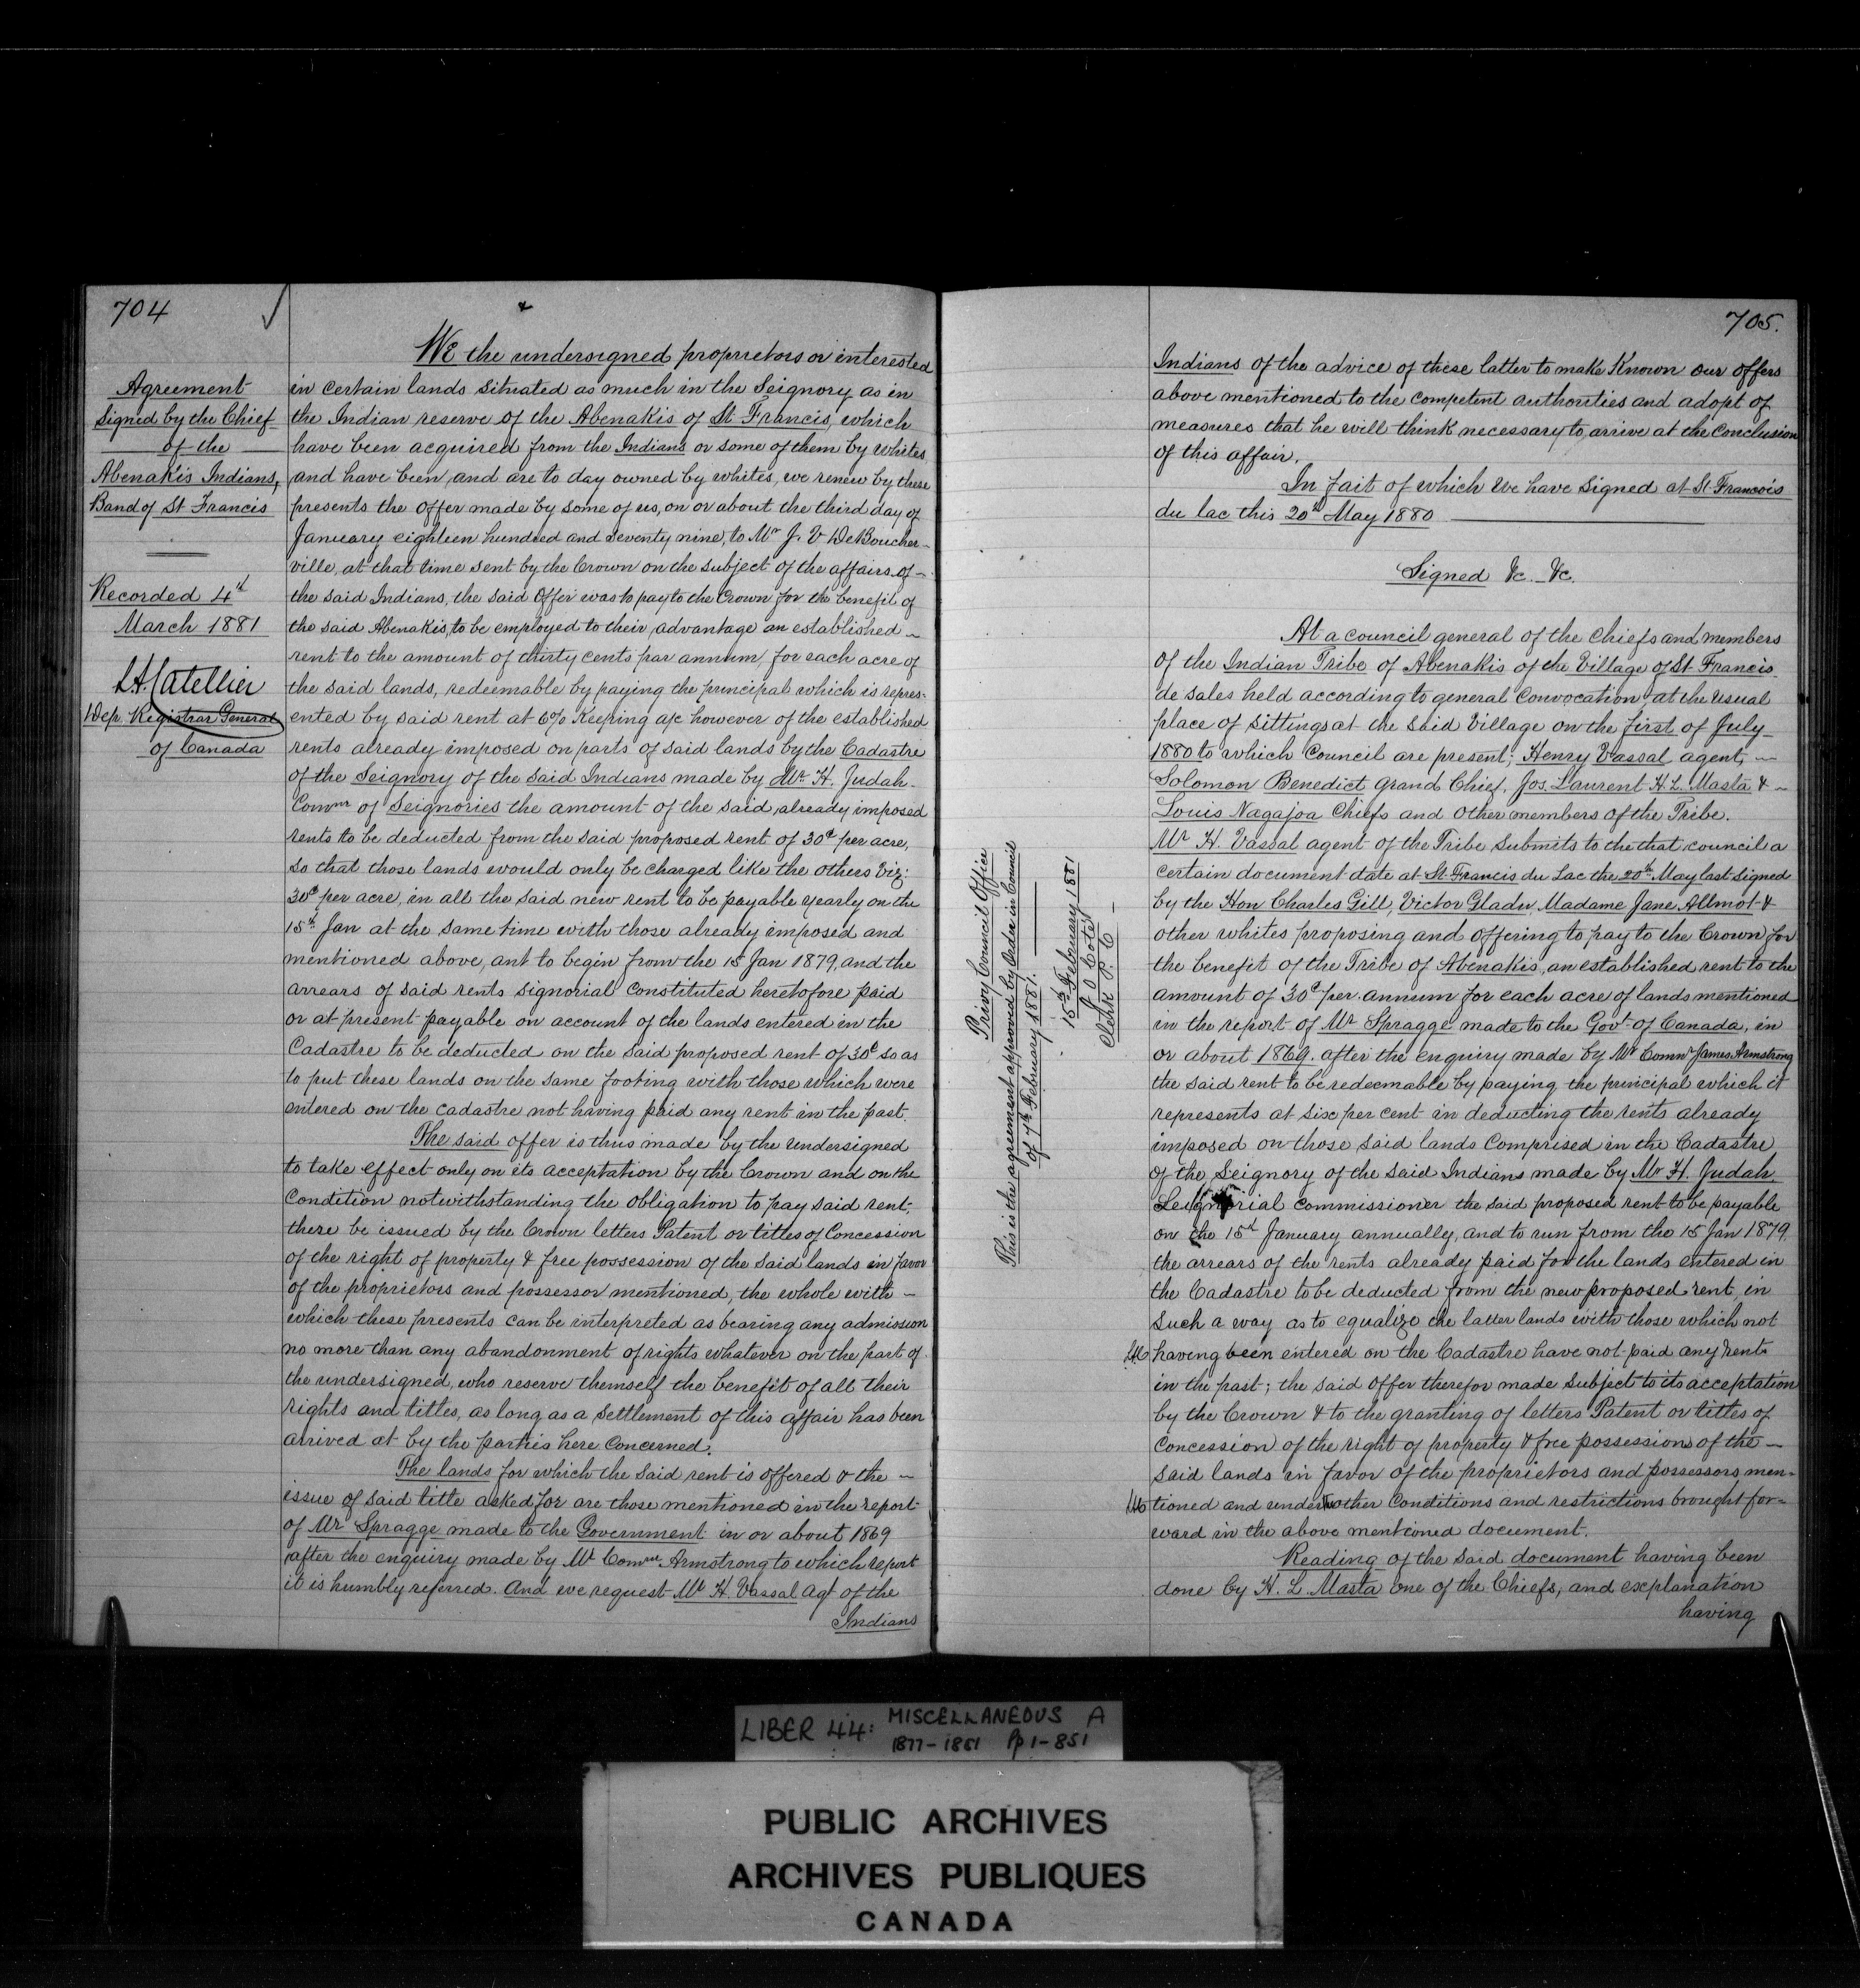 704
Agreement
Signed by the Chief
of the
Abenakis Indians,
Band of St Francis
Recorded 4th
March 1881
L.A. Catellier
Dep. Registrar General
of Canada
We the undersigned proprietors or interested
in certain lands situated as much in the Seignory as in
the Indian reserve of the Abenakis of St Francis, which
have been acquired from the Indians or some of them by whites
and have been, and are to day owned by whites, we renew by these
presents the offer made by some of us, on or about the third day of
January eighteen hundred and seventy nine, to Mr J. V DeBoucher-
ville, at that time sent by the Crown on the subject of the affairs of
the said Indians, the said offer was to pay to the Crown for the benefit of
the said Abenakis, to be employed to their advantage an established
rent to the amount of thirty cents par annum, for each acre of
the said lands, redeemable by paying the principal which is repres-
ented by said rent at 6% Keeping a/c however of the established
rents already imposed on parts of said lands by the Cadastre
of the Seignory of the said Indians made by Mr. H. Judah
Commr of Seignories the amount of the said already imposed
rents to be deducted from the said proposed rent of 30c per acre,
so that those lands would only be charged like the others viz:
30c per acre, in all the said new rent to be payable yearly on the
15th Jan at the same time with those already imposed and
mentioned above, ant to begin from the 15 Jan 1879, and the
arrears of said rents signorial constituted heretofore paid
or at present payable on account of the lands entered in the
Cadastre to be deducted on the said proposed rent of 30c so as
to put these lands on the same footing with those which were
entered on the cadastre not having paid any rent in the past.
The said offer is thus made by the undersigned
to take effect only on its acceptation by the Crown and on the
condition notwithstanding the obligation to pay said rent,
there be issued by the Crown letters Patent or titles of Concession
of the right of property & free possession of the said lands in favor
of the proprietors and possessor mentioned, the whole with
which these presents can be interpreted as bearing any admission
no more than any abandonment of rights whatever on the part of
the undersigned, who reserve themself the benefit of all their
rights and titles, as long as a settlement of this affair has been
arrived at by the parties here concerned.
The lands for which the said rent is offered & the
issue of said title asked for are those mentioned in the report
of Mr Spragge made to the Government in or about 1869
after the enquiry made by Mr Commr Armstrong to which report
it is humbly referred. And we request Mr H. Vassal Agt of the
Indians
Privy Council Office
This is the agreement approved by Order in Council
of 7th February 1881.
15th February 1881
J O Coté
Clerk P. C
705.
Indians of the advice of these latter to make Known our offers
above mentioned to the competent authorities and adopt of
measures that he will think necessary to arrive at the conclusion
of this affair.
In fait of which we have signed at St Francois
du lac this 20th May 1880
Signed &c. &c.
At a council general of the chiefs and members
of the Indian Tribe of Abenakis of the Village of St Francis
de sales held according to general convocation, at the usual
place of sittings at the said Village on the first of July
1880 to which Council are present; Henry Vassal agent,
Solomon Benedict Grand Chief, Jos. Laurent H. L. Masta &
Louis Nagajoa Chiefs and other members of the Tribe.
Mr H. Vassal agent of the Tribe submits to the that council a
certain document date at St. Francis du Lac the 20th May last signed
by the Hon Charles Gill, Victor Gladu Madame Jane Allmot &
other whites proposing and offering to pay to the Crown for
the benefit of the Tribe of Abenakis, an established rent to the
amount of 30c per annum for each acre of lands mentioned
in the report of Mr Spragge made to the Govt of Canada, in
or about 1869. after the enquiry made by Mr Commr James Armstrong
the said rent to be redeemable by paying the principal which it
represents at six per cent in deducting the rents already
imposed on those said lands comprised in the Cadastre
of the Seignory of the said Indians made by Mr H. Judah
Seignorial commissioner the said proposed rent to be payable
on the 15th January annually, and to run from the 15 Jan 1879,
the arrears of the rents already paid for the lands entered in
the Cadastre to be deducted from the new proposed rent, in
such a way as to equalize the latter lands with those which not
having been entered on the Cadastre have not paid any rents
in the past; the said offer therefor made subject to its acceptation
by the Crown & to the granting of letters Patent or titles of
concession of the right of property & free possessions of the
said lands in favor of the proprietors and possessors men-
tioned and under other conditions and restrictions brought for-
ward in the above mentioned document.
Reading of the said document having been
done by H. L. Masta one of the Chiefs, and explanation
having
LIBER 44: MISCELLANEOUS A
1877-1881 Pp 1-851
PUBLIC ARCHIVES
ARCHIVES PUBLIQUES
CANADA